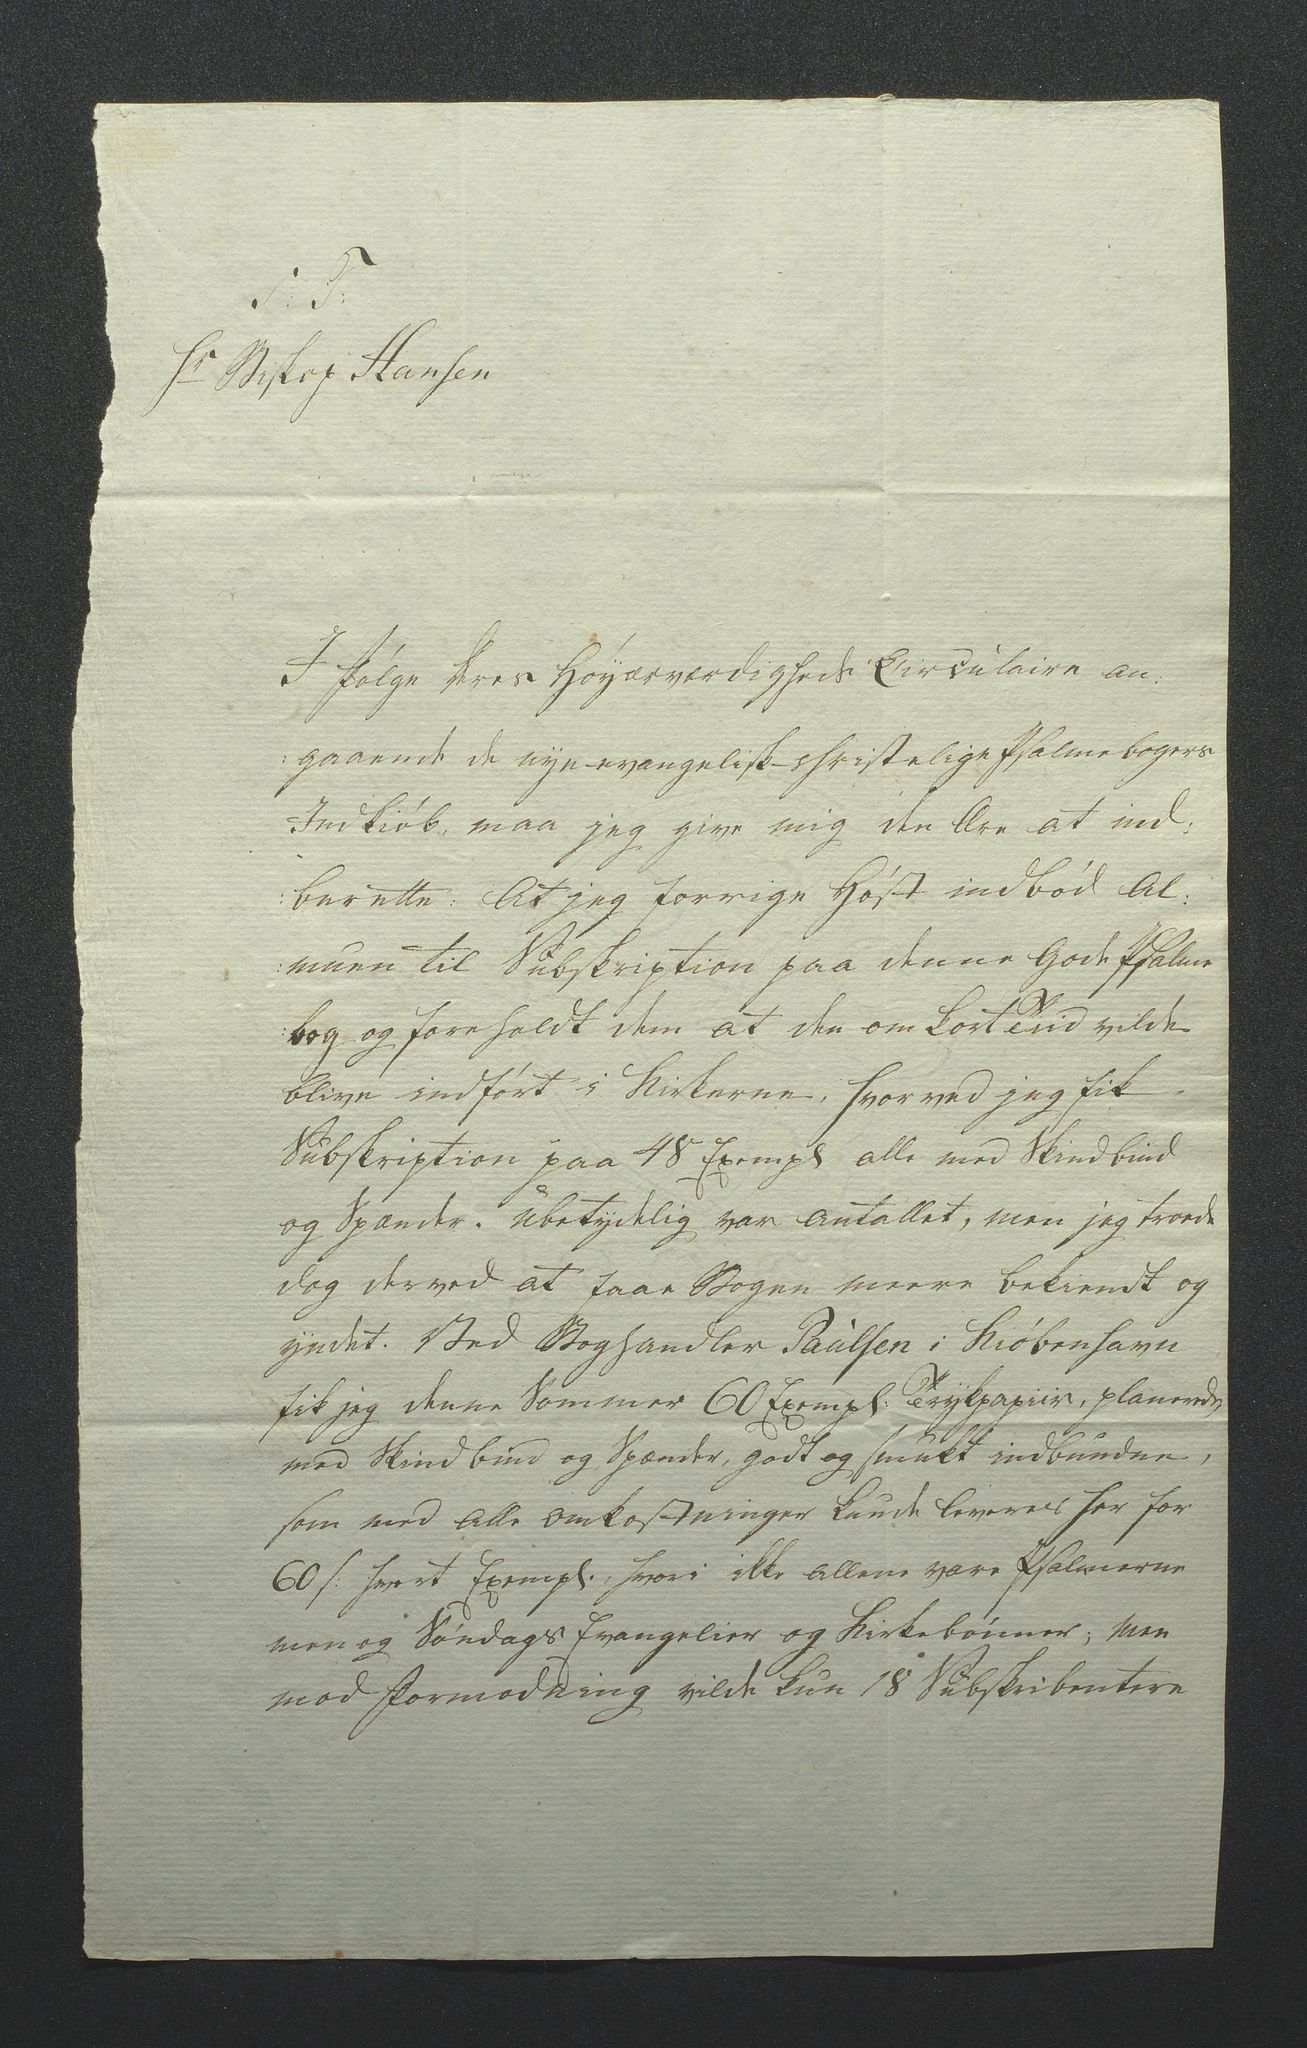 S: T:
Hr Biskop Hansen
I Følge Deres Høyærværdigheds Circulaire an:
:gaaende de nye evangelisk-christelige Psalmebogers
Indkiøb, maa jeg give mig den Ære at ind:
:berette: At jeg forrige Høst indbød Al:
:muen til Subskription paa denne gode Psalme
:bog og foreholdt dem at den om kort Tiid vilde
blive indført i Kirkerne, hvorved jeg fik
Subskription paa 48 Exempl alle med Skindbind
og Spænder. Ubetydelig var Antallet, men jeg troede
dog derved at faae Bogen meere bekiendt og
yndet. Ved Boghandler Paulsen i Kiøbenhavn
fik jeg denne Sommer 60 Exempl: Trykpapiir, planerede
med Skindbind og Spænder, godt og smukt indbundne,
som med alle Omkostninger kunde leveres her for
60 s: hvert Exempl:, hvori ikke allene vare Psalmerne
men og Søndags Evangelier og Kirkebønner; men
mod Formodning vilde kun 18 Subskribentere